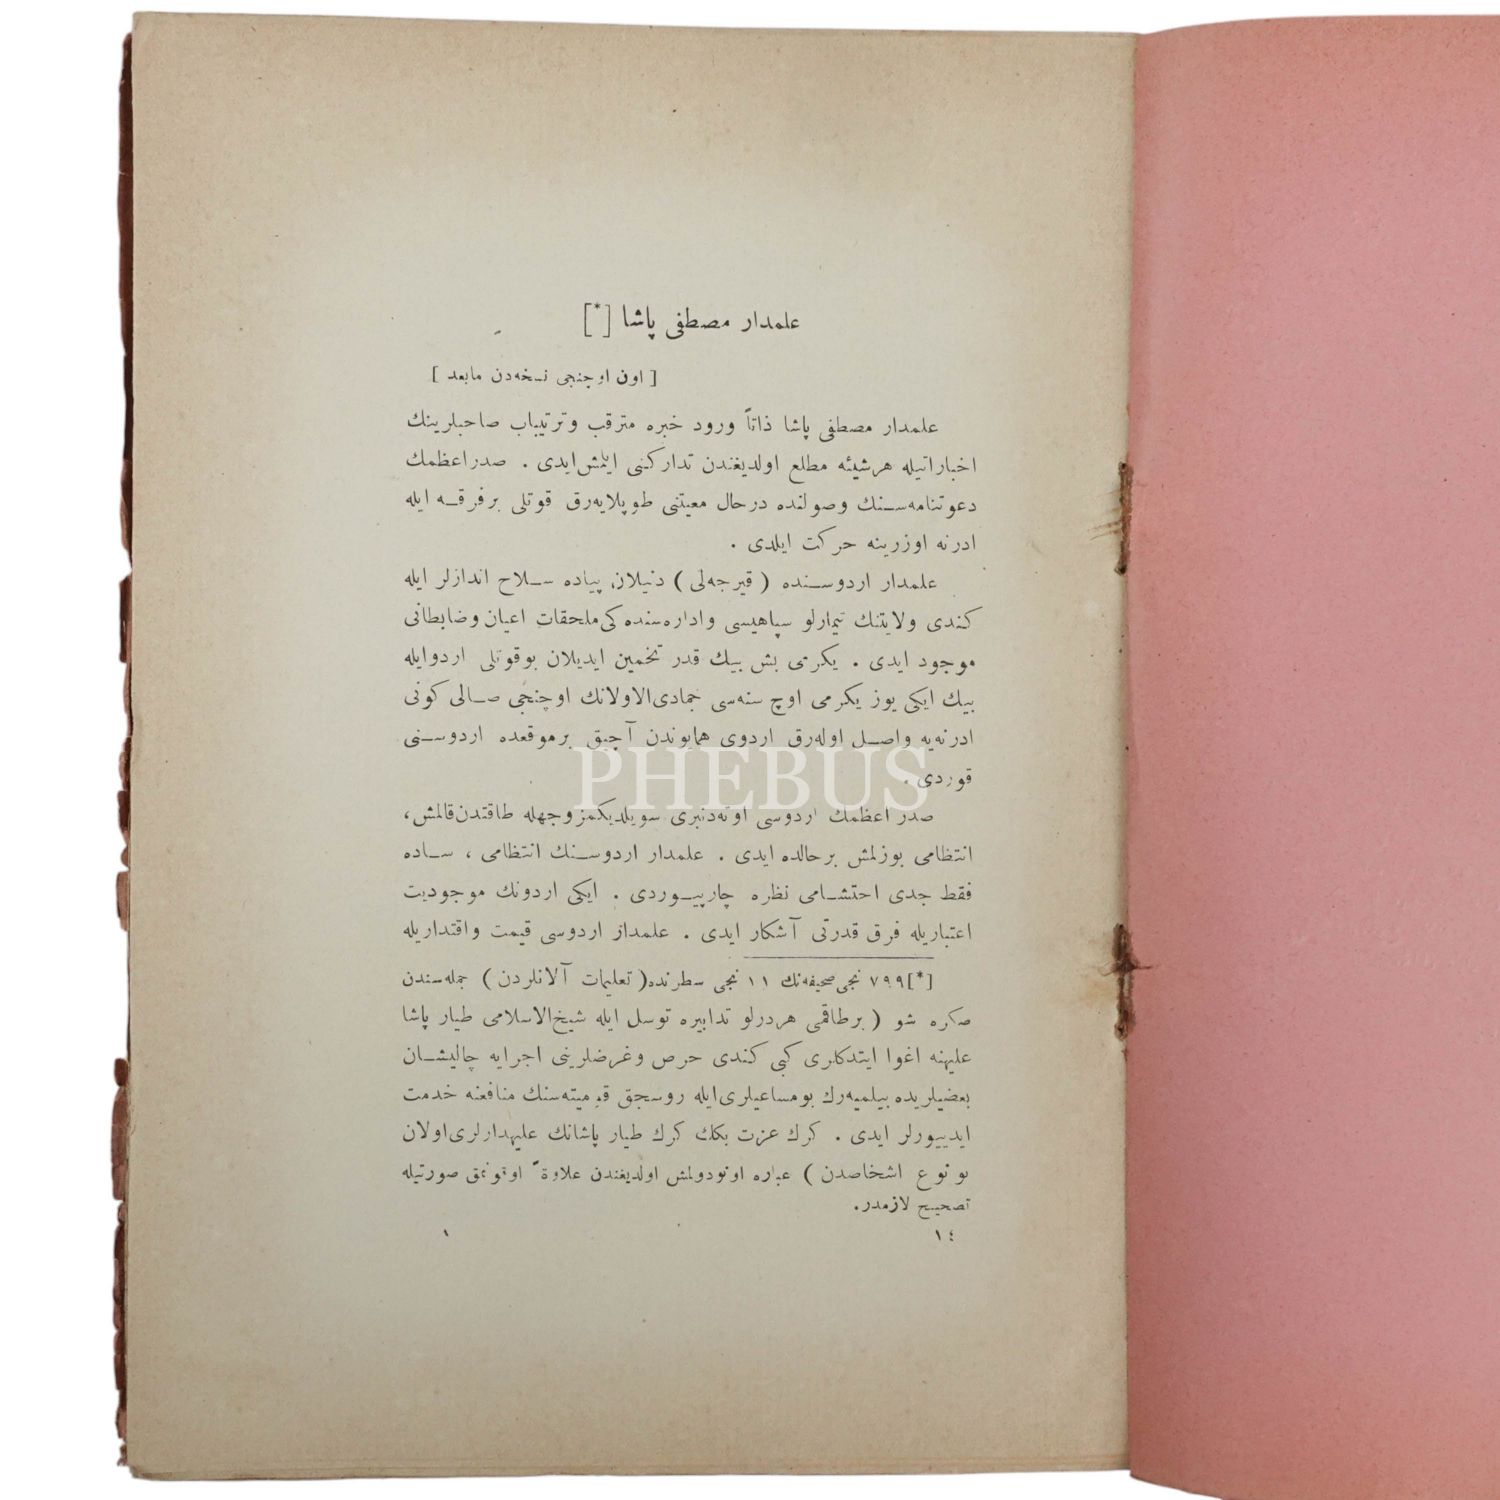 علمدار مصطفى پاشا [*]
[ اون اوچنجى نسخه‌دن مابعد ]
علمدار مصطفى پاشا ذاتاً ورود خبره مترقب وترتيباب صاحبلرينك
اخباراتيله هرشيئه مطلع اولديغندن تداركنى ايلمش‌ايدى . صدراعظمك
دعوتنامه‌سنك وصولنده درحال معيتنى طوپلايه‌رق قوتلى برفرقه ايله
ادرنه اوزرينه حركت ايلدى .
علمدار اردوسنده ( قيرجه‌لى ) دنيلان پياده سلاح اندازلر ايله
كندى ولايتنك تيمارلو سپاهيسى واداره‌سنده‌كى ملحقات اعيان وضابطانى
موجود ايدى . يكرمى بش بيك قدر تخمين ايديلان بوقوتلى اردوايله
بيك ايكى يوز يكرمى اوچ سنه‌سى جمادى‌الاولانك اوچنجى صالى كونى
ادرنه‌يه واصل اوله‌رق اردوى همايوندن آچيق برموقعده اردوسنى
قوردى .
صدر اعظمك اردوسى اوته‌دنبرى سويلديكمز وجهله طاقتدن قالمش،
انتظامى بوزلمش برحالده ايدى . علمدار اردوسنك انتظامى ، ساده
فقط جدى احتشامى نظره چارپيوردى . ايكى اردونك موجوديت
اعتباريله فرق قدرتى آشكار ايدى . علمدار اردوسى قيمت واقتداريله
[*] ٧٩٩ نجى صحيفه‌نك ١١ نجى سطرنده ( تعليمات آلانلردن ) جمله‌سندن
صكره شو ( برطاقمى هردرلو تدابيره توسل ايله شيخ‌الاسلامى طيار پاشا
عليهنه اغوا ايتدكلرى كبى كندى حرص وغرضلرينى اجرايه چاليشان
بعضيلريده بيلميه‌رك بومساعيلرى‌ايله روسجق قوميته‌سنك منافعنه خدمت
ايدييورلر ايدى . كرك عزت بكك كرك طيار پاشانك عليهدارلرى‌اولان
بو نوع اشخاصدن ) عباره اونودولمش اولديغندن علاوةً اوقونمق صورتيله
تصحيح لازمدر.
١٤
١
PHEBUS